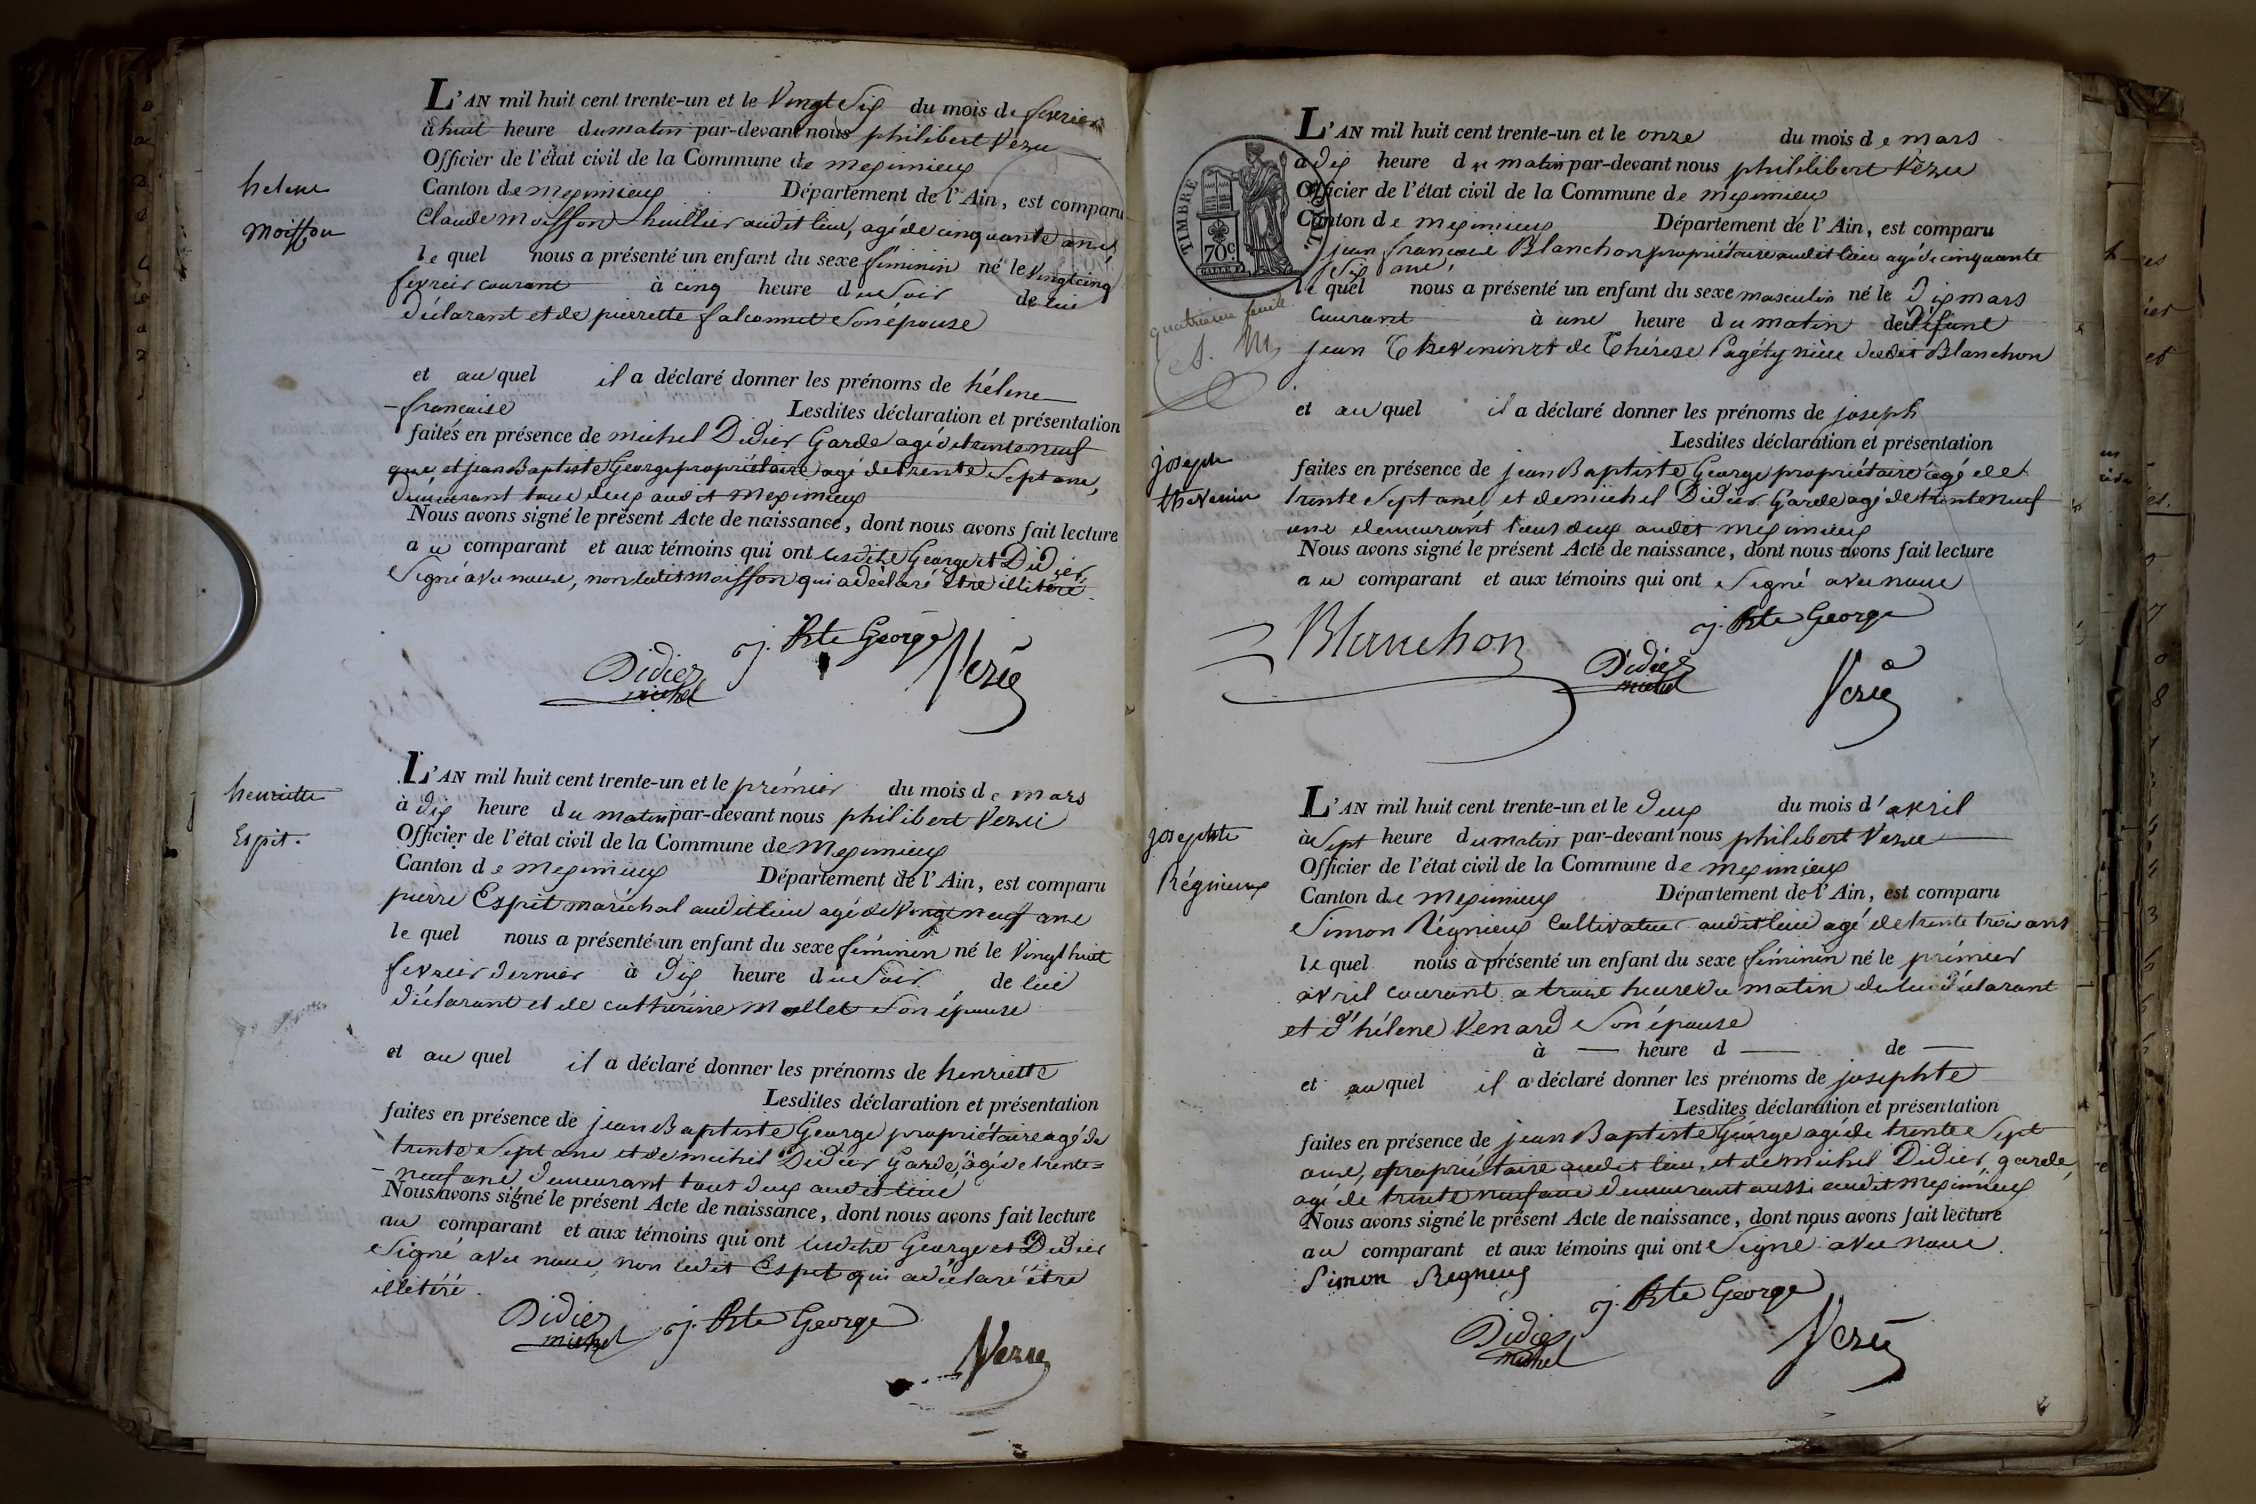 helene
Moiffon
L'AN mil huit cent trente-un et le Vingt Six du mois de fevrier
à huit heure du matin par-devant nous philibert Vezu
Officier de l'état civil de la Commune de meximieux
Canton de meximieux Département de l'Ain, est comparu
Claude Moiffon huillier audit lieu, agé de cinquante ans
le quel nous a présenté un enfant du sexe féminin né le vingt cinq
fevrier courant à cinq heure du Soir de lui
déclarant et de pierrette falconnet Son epouse
et au quel il a déclaré donner les prénoms de hélene
francoise Lesdites déclaration et présentation
faites en présence de michel Didier Garde agé de trente neuf
ans et jean Baptiste George propriétaire agé de trente Sept ans,
Demeurant tous deux audit Meximieux
Nous avons signé le présent Acte de naissance, dont nous avons fait lecture
au comparant et aux témoins qui ont lesdits George et Didier
Signé avec nous, non ledit moiffon qui a déclaré être illitéré.
Didier michel
j. Bte George
Vezu
henriette
Espit.
L'AN mil huit cent trente-un et le prémier du mois de mars
à dix heure du matin par-devant nous philibert Vezu
Officier de l'état civil de la Commune de Meximieux
Canton de meximieux Département de l'Ain, est comparu
pierre Espit maréchal audit lieu agé de Vingt neuf ans
le quel nous a présenté un enfant du sexe féminin né le Vingt huit
fevrier dernier à dix heure du Soir, de lui
déclarant et de cathérine Mollet Son épouse
et au quel il a déclaré donner les prénoms de henriette
Lesdites déclaration et présentation
faites en présence de jean Baptiste George propriétaire agé de
trente Sept ans et de michel Didier Garde, agé de trente=
neuf ans, demeurant tous deux audit lieu
Nous avons signé le présent Acte de naissance, dont nous avons fait lecture
au comparant et aux témoins qui ont lesdits George et Didier
Signé avec nous, non ledit Espit qui a déclaré être
illetéré.
Didier michel
j. Bte George
Vezu
TIMBRE ROYAL
70c.
quatrieme feuille
joseph
thevenin
L'AN mil huit cent trente-un et le onze du mois de mars
à dix heure du matin par-devant nous philibert Vezu
Officier de l'état civil de la Commune de meximieux
Canton de meximieux Département de l'Ain, est comparu
jean francois Blanchon propriétaire audit lieu agé de cinquante
Six ans,
le quel nous a présenté un enfant du sexe masculin né le dix mars
Courant à une heure du matin de défunt
jean Thevenin et de Thérese Pagéty nièce dudit Blanchon
et au quel il a déclaré donner les prénoms de joseph
Lesdites déclaration et présentation
faites en présence de jean Baptiste George propriétaire agé de
trente Sept ans, et de michel Didier Garde agé de trente neuf
ans demeurant tous deux audit meximieux
Nous avons signé le présent Acte de naissance, dont nous avons fait lecture
au comparant et aux témoins qui ont Signé avec nous
Blanchon
j. Bte George
Didier michel
Vezu
josephte
Régnieux
L'AN mil huit cent trente-un et le deux du mois d'avril
à Sept heure du matin par-devant nous philibert Vezu
Officier de l'état civil de la Commune de meximieux
Canton de Meximieux Département de l'Ain, est comparu
Simon Régnieux Cultivateur audit lieu agé de trente trois ans
le quel nous a présenté un enfant du sexe féminin né le prémier
avril courant à trois heures du matin de lui déclarant
et d'hélene Venard Son épouse
à — heure d — de —
et au quel il a déclaré donner les prénoms de josephte
Lesdites déclaration et présentation
faites en présence de jean Baptiste George agé de trente Sept
ans, propriétaire audit lieu, et de michel Didier, garde,
agé de trente neuf ans demeurant aussi audit meximieux
Nous avons signé le présent Acte de naissance, dont nous avons fait lecture
au comparant et aux témoins qui ont Signé avec nous.
Simon Regneux
j. Bte George
Didier michel
Vezu